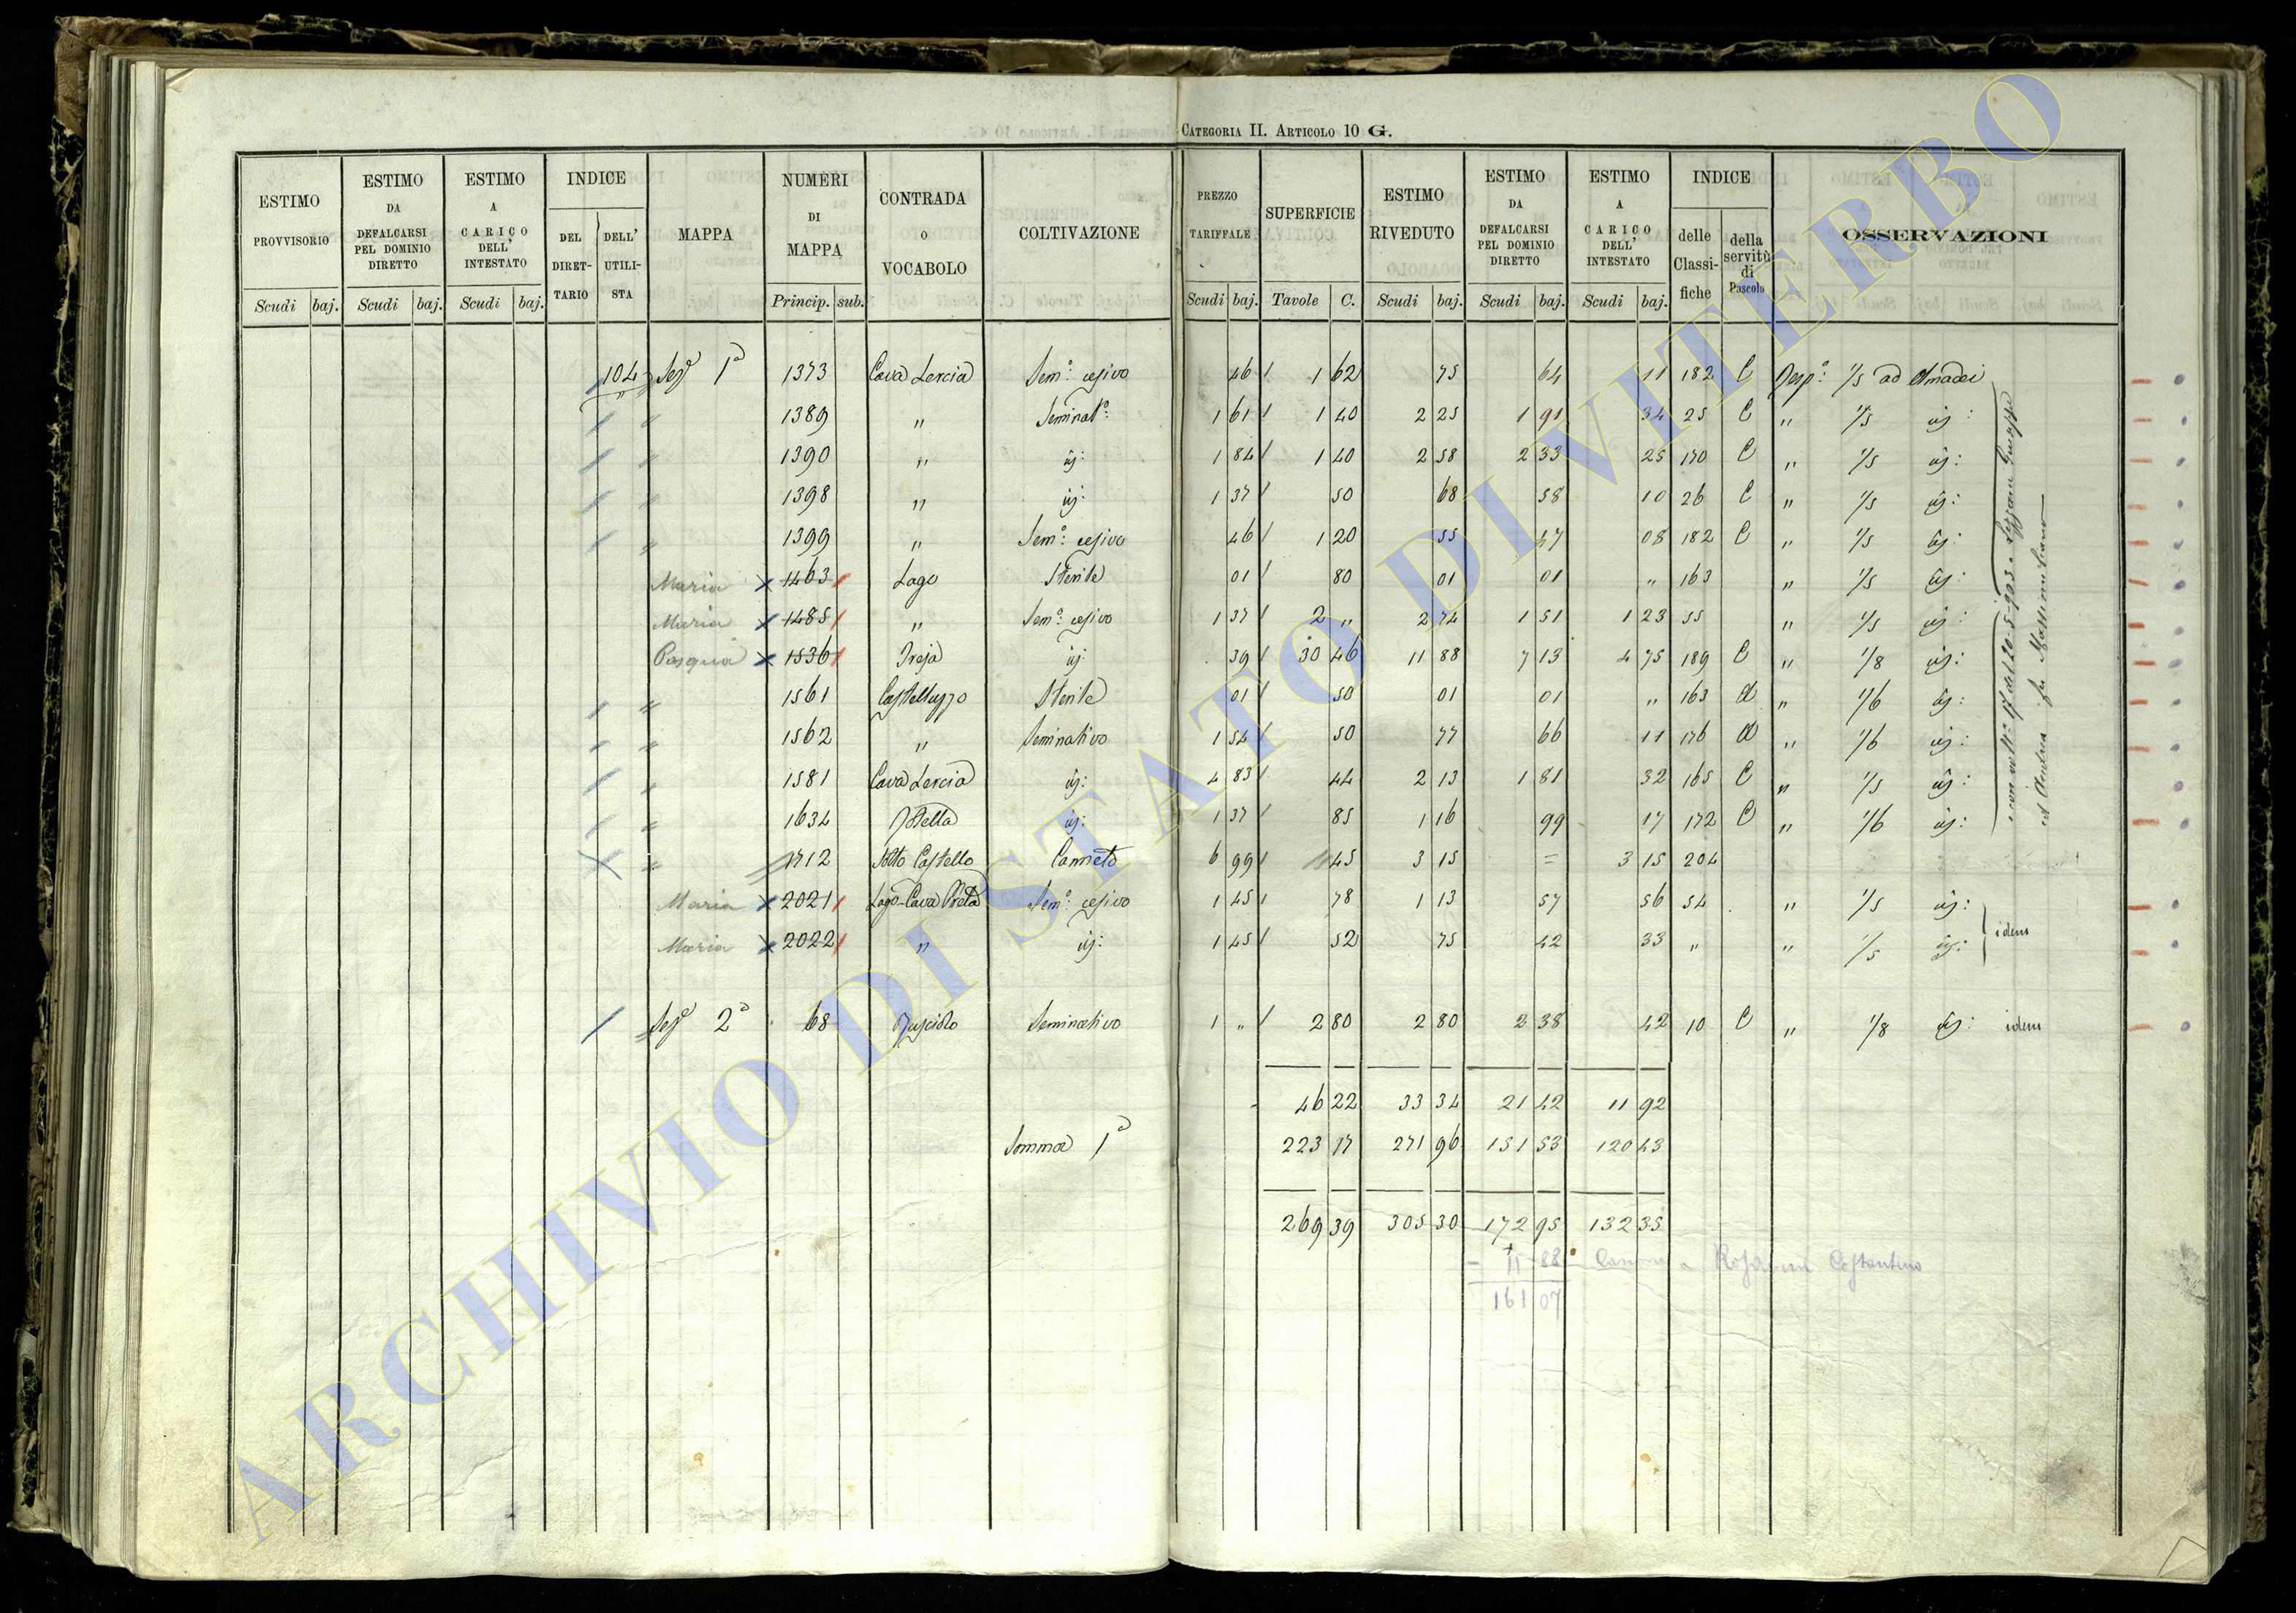 CATEGORIA II. ARTICOLO 10 G.
ESTIMO PROVVISORIO Scudi baj.
ESTIMO DA DEFALCARSI PEL DOMINIO DIRETTO Scudi baj.
ESTIMO A CARICO DELL' INTESTATO Scudi baj.
INDICE DEL DIRETTARIO DELL' UTILISTA
MAPPA
NUMERI DI MAPPA Princip. sub.
CONTRADA O VOCABOLO
COLTIVAZIONE
PREZZO TARIFFALE Scudi baj.
SUPERFICIE Tavole C.
ESTIMO RIVEDUTO Scudi baj.
ESTIMO DA DEFALCARSI PEL DOMINIO DIRETTO Scudi baj.
ESTIMO A CARICO DELL' INTESTATO Scudi baj.
INDICE delle Classifiche della servitù di Pascolo
OSSERVAZIONI
104 Sezᵉ 1ᵃ 1373 Cava Lercia Semᵒ: cesivo 46 1 62 75 64 11 182 C Respᵃ: 1/5 ad Amadei
1389 " Seminatᵒ: 1 61 1 40 2 25 1 91 34 25 C " 1/5 id:
1390 " id: 1 84 1 40 2 58 2 33 25 170 C " 1/5 id:
1398 " id: 1 37 50 68 58 10 26 C " 1/5 id:
1399 " Semᵒ: cesivo 46 1 20 55 47 08 182 C " 1/5 id:
Maria 1463 Lago Sterile 01 80 01 01 " 163 " 1/5 id:
Maria 1485 " Semᵒ: cesivo 1 37 2 " 2 74 1 51 1 23 55 " 1/5 id:
Pasqua 1536 Treja id: 39 30 46 11 88 7 13 4 75 189 C " 1/8 id:
1561 Castelluzzo Sterile 01 50 01 01 " 163 " 1/6 id:
1562 " Seminativo 1 54 50 77 66 11 176 " 1/6 id:
1581 Cava Lercia id: 4 83 44 2 13 1 81 32 165 C " 1/5 id:
1634 id: 1 37 85 1 16 99 17 172 C " 1/6 id:
1712 Sotto Castello Canneto 6 99 45 3 15 = 3 15 204
Maria 2021 Lago-Cava Semᵒ: cesivo 1 45 78 1 13 57 56 54 " 1/5 id:
Maria 2022 " id: 1 45 52 75 42 33 " " 1/5 id: idem
Sezᵉ 2ᵃ 68 Seminativo 1 " 2 80 2 80 2 38 42 10 C " 1/8 id: idem
46 22 33 34 21 42 11 92
Somma 1ᵃ 223 17 271 96 151 53 120 43
269 39 305 30 172 95 132 35
- 11 88 Costantino
161 07
con Nᵒ 17 del 20-5-903 a Giuseppe
ed Andrea fu Massimiliano
ARCHIVIO DI STATO DI VITERBO